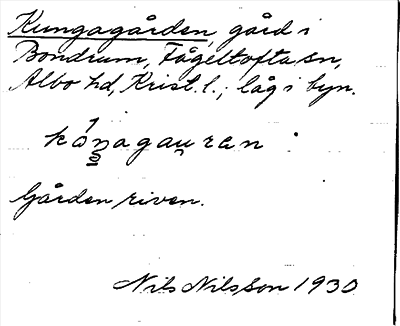 Kungagården, gård i
Bondrum, Fågeltofta sn,
Albo hd, Krist. l.; låg i byn.
kóṉagau̯ran :
Gården riven.
Nils Nilsson 1930